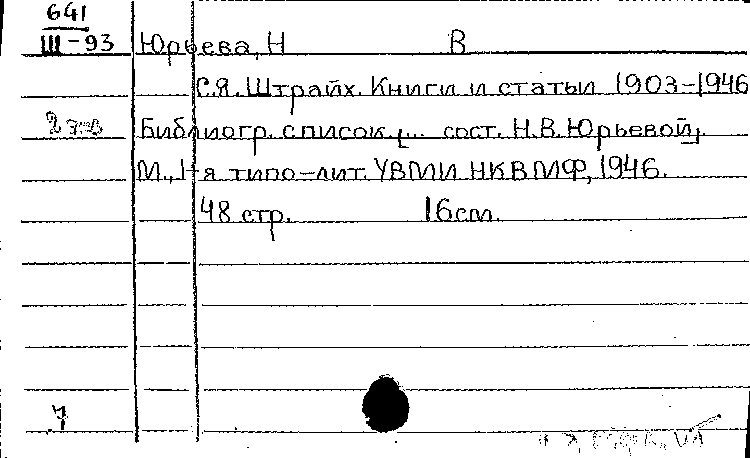 641
III-93 Юрьева, Н В
С.Я. Штрайх. Книги и статьи 1903-1946
2 экз Библиогр. список [... сост. Н.В. Юрьевой].
М., 1-я типо-лит. УВМИ НКВМФ, 1946.
48 стр. 16см.